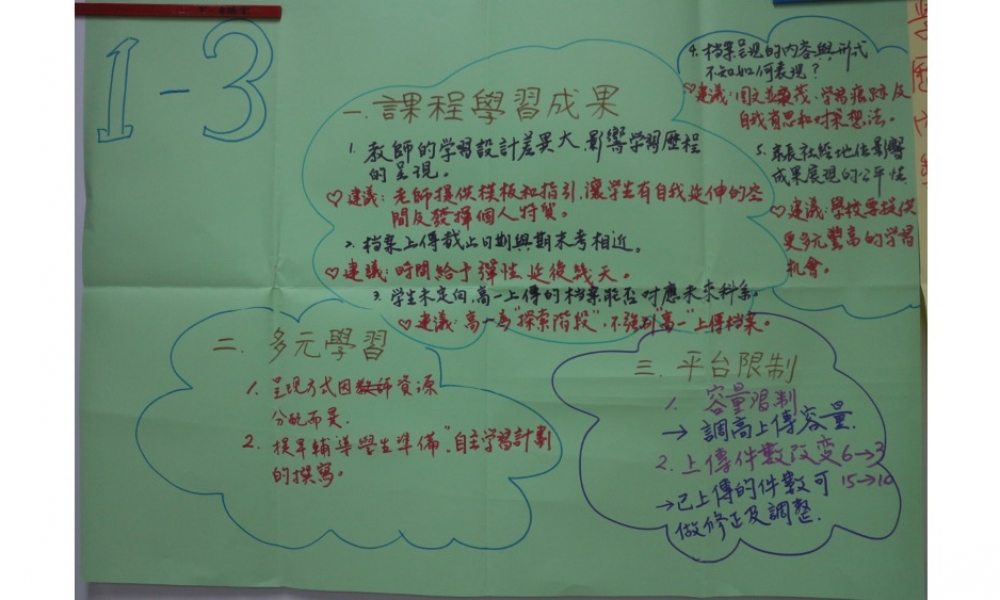 1-3
一.課程學習成果
1. 教師的学習設計差異大,影響学習歷程
的呈現。
♡建議:老師提供模板和指引,讓学生有自我延伸的空
間及發揮個人特質。
2. 檔案上傳截止日期與期末考相近。
♡建議:時間給予彈性,延後幾天。
3. 学生未定向,高一上傳的檔案能否對應未來科系。
♡建議:高一為"探索階段",不強制高一上傳檔案。
4. 檔案呈現的内容與形式
不知如何表現?
♡建議:圖文並茂、學習痕跡及
自我省思和対未來想法。
5. 家長社經地位影響
成果展現的公平性
♡建議:學校要提供
更多元豐富的学習
机會。
二.多元學習
1. 呈現方式因教師資源
分配而異.
2. 提早輔導學生準備"自主学習計劃
的撰寫。
三.平台限制
1. 容量限制
→ 調高上傳容量.
2. 上傳件數改変6→3
15→10
→已上傳的件數可
做修正及調整.